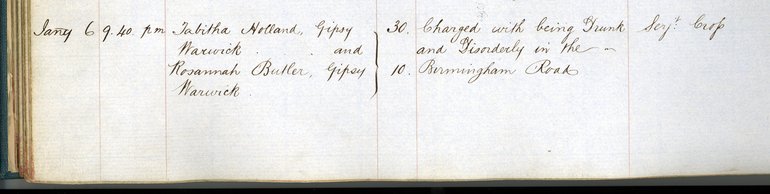 Jany 6 9.40 pm Tabitha Holland, Gipsy 30. Charged with being Drunk Serjt. Cross
Warwick . . and and Disorderly in the ~
Rosannah Butler, Gipsy 10. Birmingham Road
Warwick .